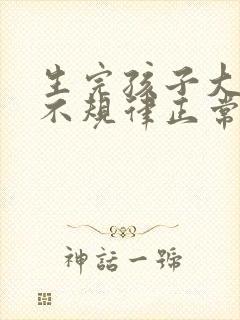 生完孩子大
不规律正常
神話一號